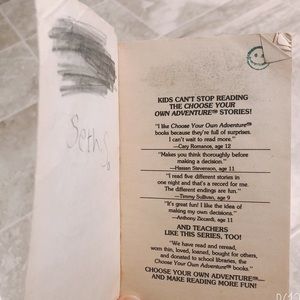 Seths
KIDS CAN'T STOP READING
THE CHOOSE YOUR
OWN ADVENTURE® STORIES!
"I like Choose Your Own Adventure®
books because they're full of surprises.
I can't wait to read more."
—Cary Romanos, age 12
"Makes you think thoroughly before
making a decision."
—Hassan Stevenson, age 11
"I read five different stories in
one night and that's a record for me.
The different endings are fun."
—Timmy Sullivan, age 9
"It's great fun! I like the idea of
making my own decisions."
—Anthony Ziccardi, age 11
AND TEACHERS
LIKE THIS SERIES, TOO!
"We have read and reread,
worn thin, loved, loaned, bought for others,
and donated to school libraries, the
Choose Your Own Adventure® books."
CHOOSE YOUR OWN ADVENTURE®—
AND MAKE READING MORE FUN!